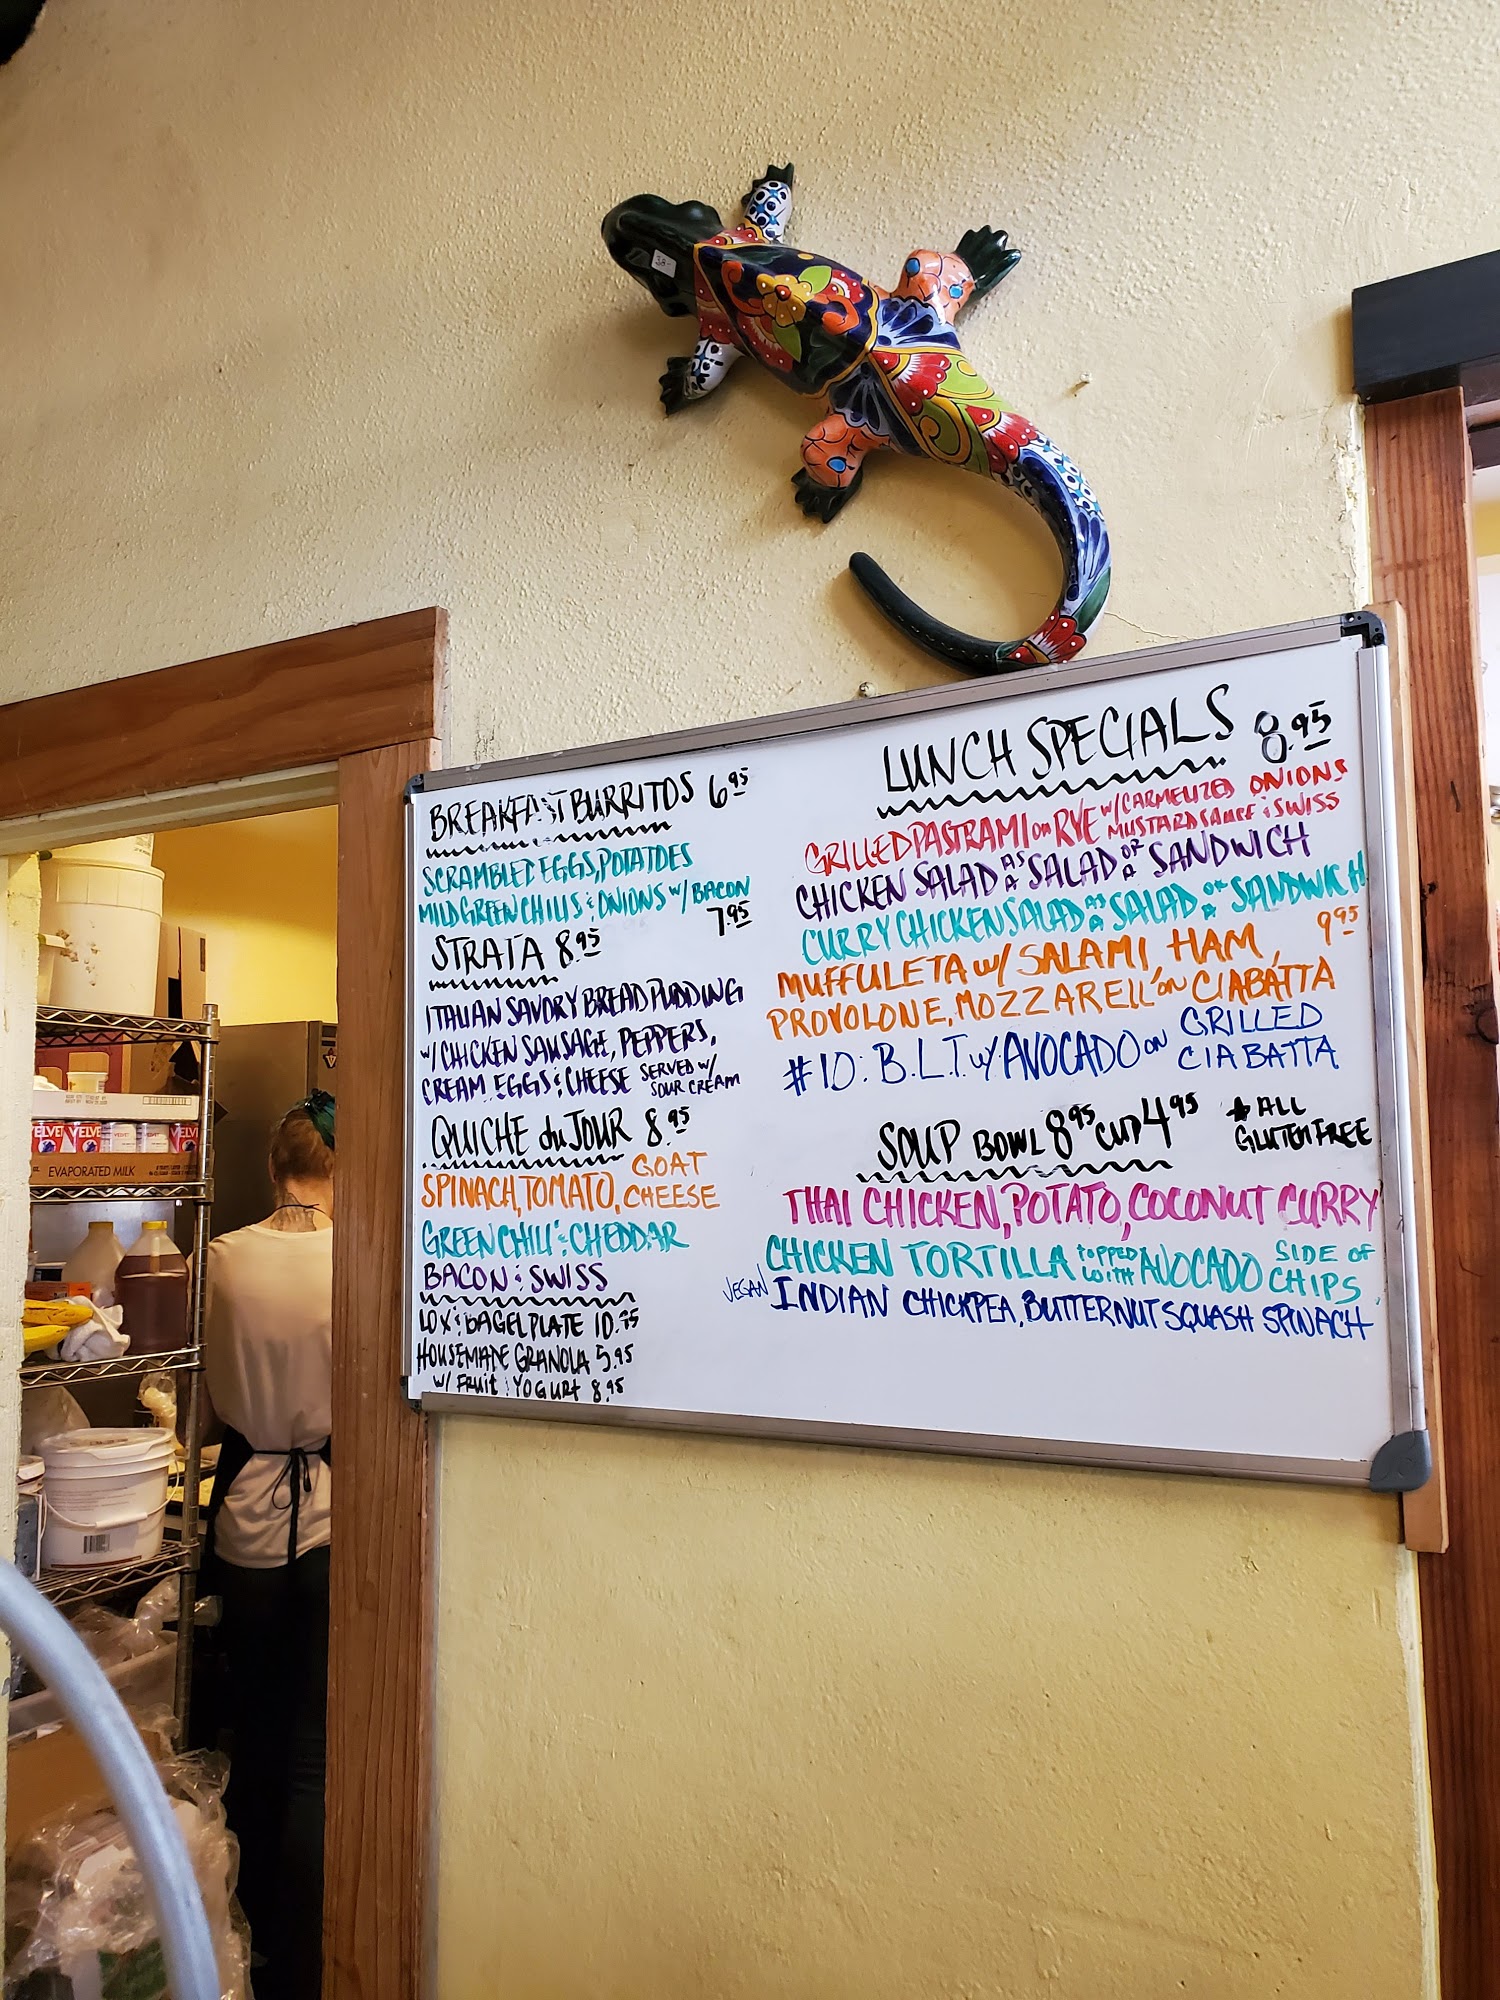 38-
BREAKFAST BURRITOS 6.95
SCRAMBLED EGGS, POTATOES
MILD GREEN CHILIS & ONIONS W/ BACON
7.95
STRATA 8.95
ITALIAN SAVORY BREAD PUDDING
W/ CHICKEN SAUSAGE, PEPPERS,
CREAM, EGGS & CHEESE SERVED W/
SOUR CREAM
QUICHE du JOUR 8.95
SPINACH, TOMATO, GOAT
CHEESE
GREEN CHILI & CHEDDAR
BACON & SWISS
LOX & BAGEL PLATE 10.75
HOUSEMADE GRANOLA 5.95
W/ FRUIT & YOGURT 8.95
LUNCH SPECIALS 8.95
GRILLED PASTRAMI on RYE W/ CARMELIZED ONIONS
MUSTARD SAUCE & SWISS
CHICKEN SALAD AS A SALAD OR A SANDWICH
CURRY CHICKEN SALAD AS A SALAD OR A SANDWICH
MUFFULETA W/ SALAMI, HAM, 9.95
PROVOLONE, MOZZARELL on CIABATTA
#10: B.L.T. W/ AVOCADO on GRILLED
CIABATTA
SOUP BOWL 8.95 CUP 4.95 * ALL
GLUTEN FREE
THAI CHICKEN, POTATO, COCONUT CURRY
CHICKEN TORTILLA TOPPED WITH AVOCADO SIDE OF
CHIPS
VEGAN INDIAN CHICKPEA, BUTTERNUT SQUASH SPINACH
VELVET
EVAPORATED MILK